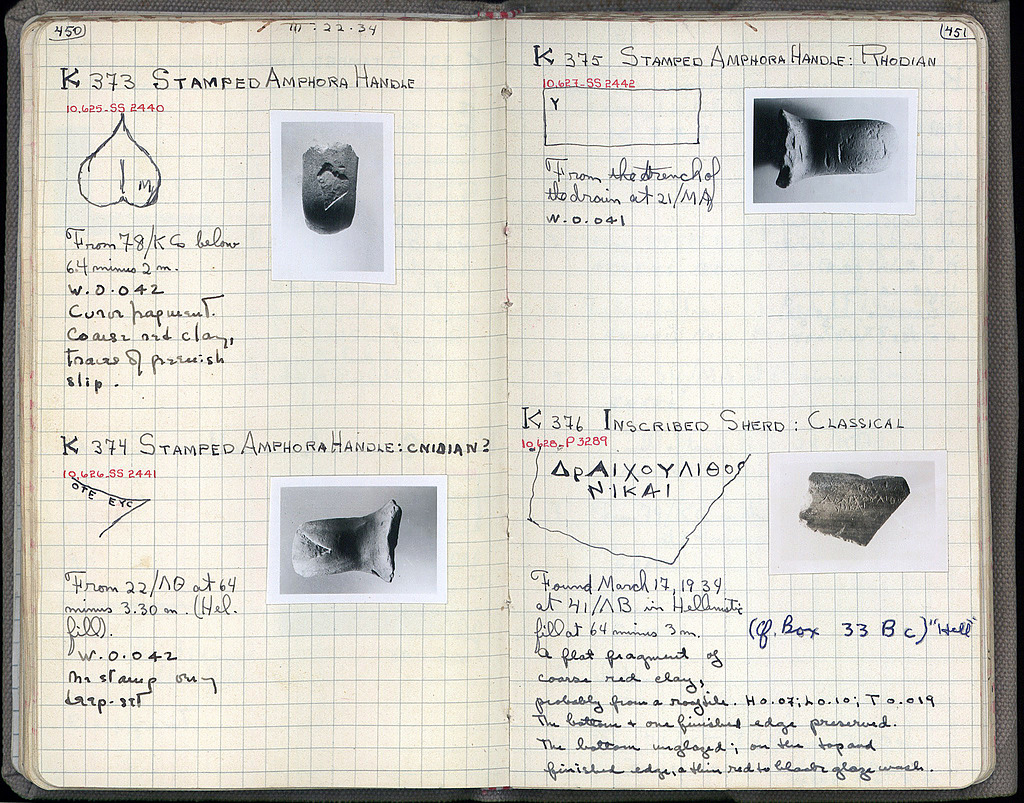 450
III-22-34
K 373 STAMPED AMPHORA HANDLE
10,625-SS 2440
M
From 78/KS below
64 minus 2 m.
W. 0.042
Curved fragment.
Coarse red clay,
traces of greenish
slip.
K 374 STAMPED AMPHORA HANDLE: CNIDIAN?
10,626-SS 2441
OTE EYC
From 22/ΛΘ at 64
minus 3.30 m. (Hel.
fill).
W. 0.042
The stamp very
deep-set
451
K 375 STAMPED AMPHORA HANDLE: RHODIAN
10,627-SS 2442
Y
From the trench of
the drain at 21/MA
W. 0.041
K 376 INSCRIBED SHERD: CLASSICAL
10,628-P 3289
ΔΡΑΙΧΟΥΛΙΘΟΣ
ΝΙΚΑΙ
Found March 17, 1934
at 41/ΛB in Hellenistic
fill at 64 minus 3 m.
(Cf. Box 33 B c) "Hell"
A flat fragment of
coarse red clay,
probably from a rooftile. H 0.07; L 0.10; T 0.019
The bottom + one finished edge preserved.
The bottom unglazed; on the top and
finished edge, a thin red to black glaze wash.